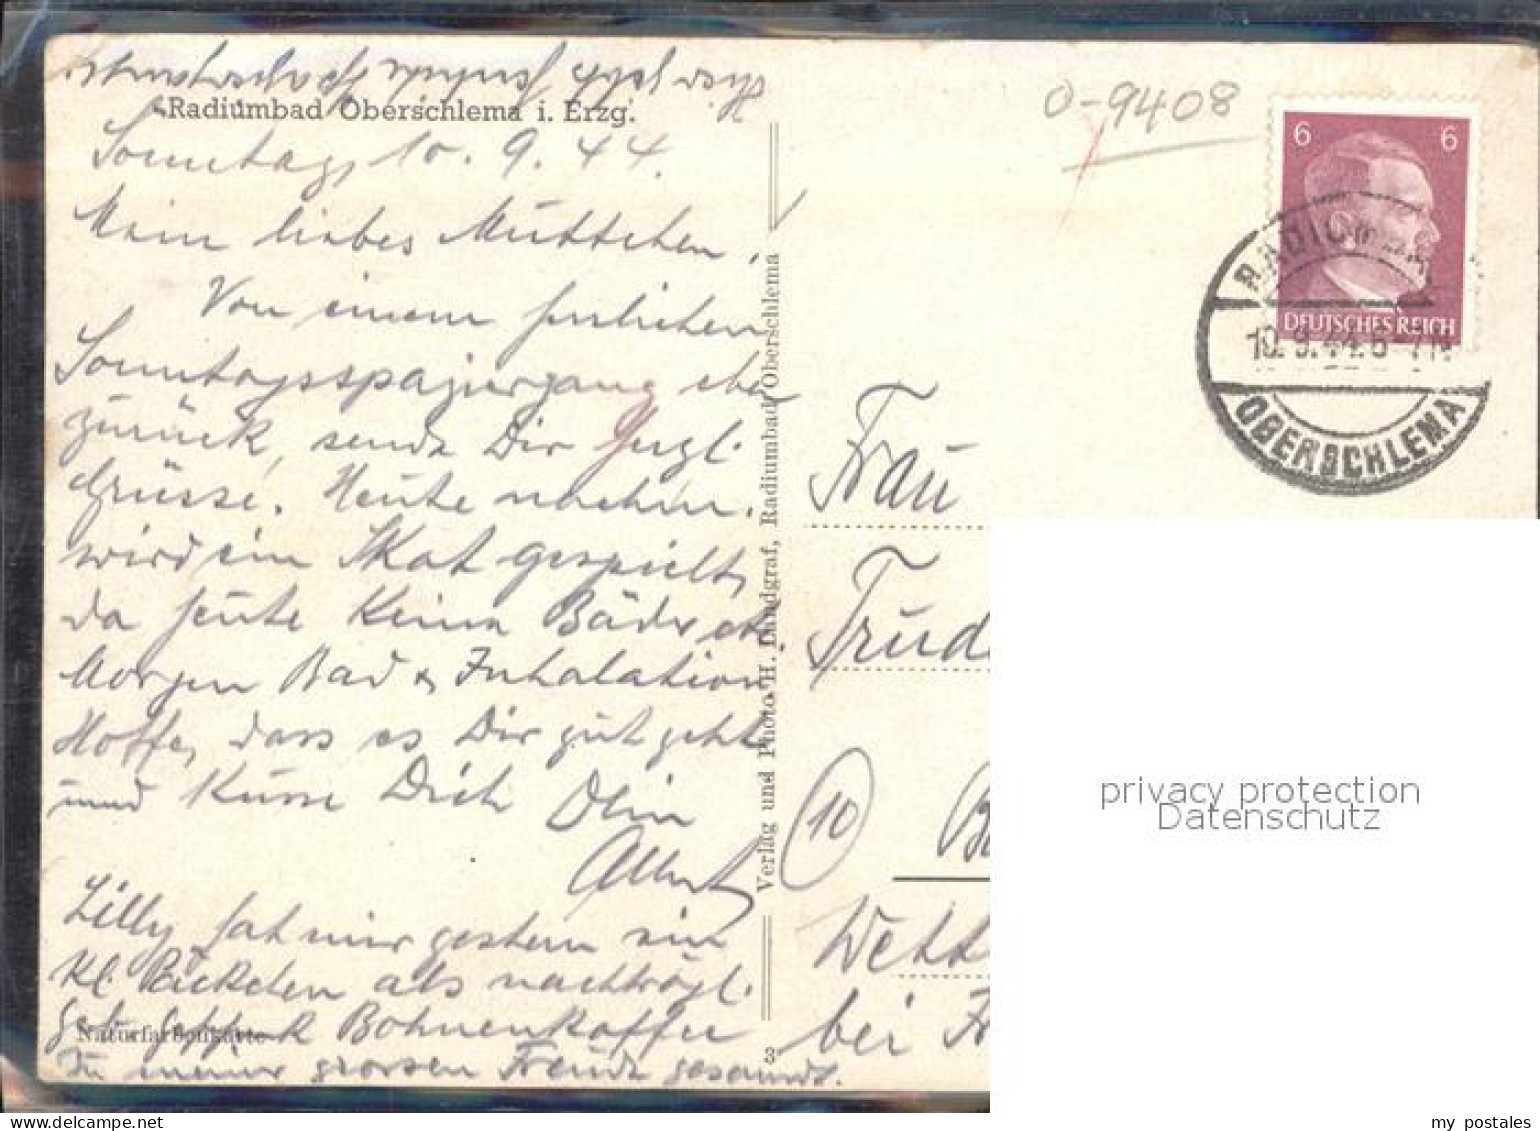 Radiumbad Oberschlema i. Erzg.
Sonntag, 10. 9. 44.
Mein liebes Muttchen,
Von einem herrlichen
Sonntagsspaziergang eben
zurück, sende Dir herzl.
Grüsse. Heute nachm.
wird ein Skat gespielt,
da heute keine Bäder etc
Morgen Bad & Inhalation
Hoffe, dass es Dir gut geht
und Küsse Dich Dein
Albert
Lilly hat mir gestern ein
kl. Päckchen als nachträgl.
Bohnenkaffee
zu meiner grossen Freude gesandt.
Naturfarbenkarte
Verlag und Photo H. Landgraf, Radiumbad Oberschlema
3
0-9408
6 6
DEUTSCHES REICH
10.9.44.6
OBERSCHLEMA
Frau
Trud
(10) B
Wett
bei Fr
privacy protection
Datenschutz
my postales